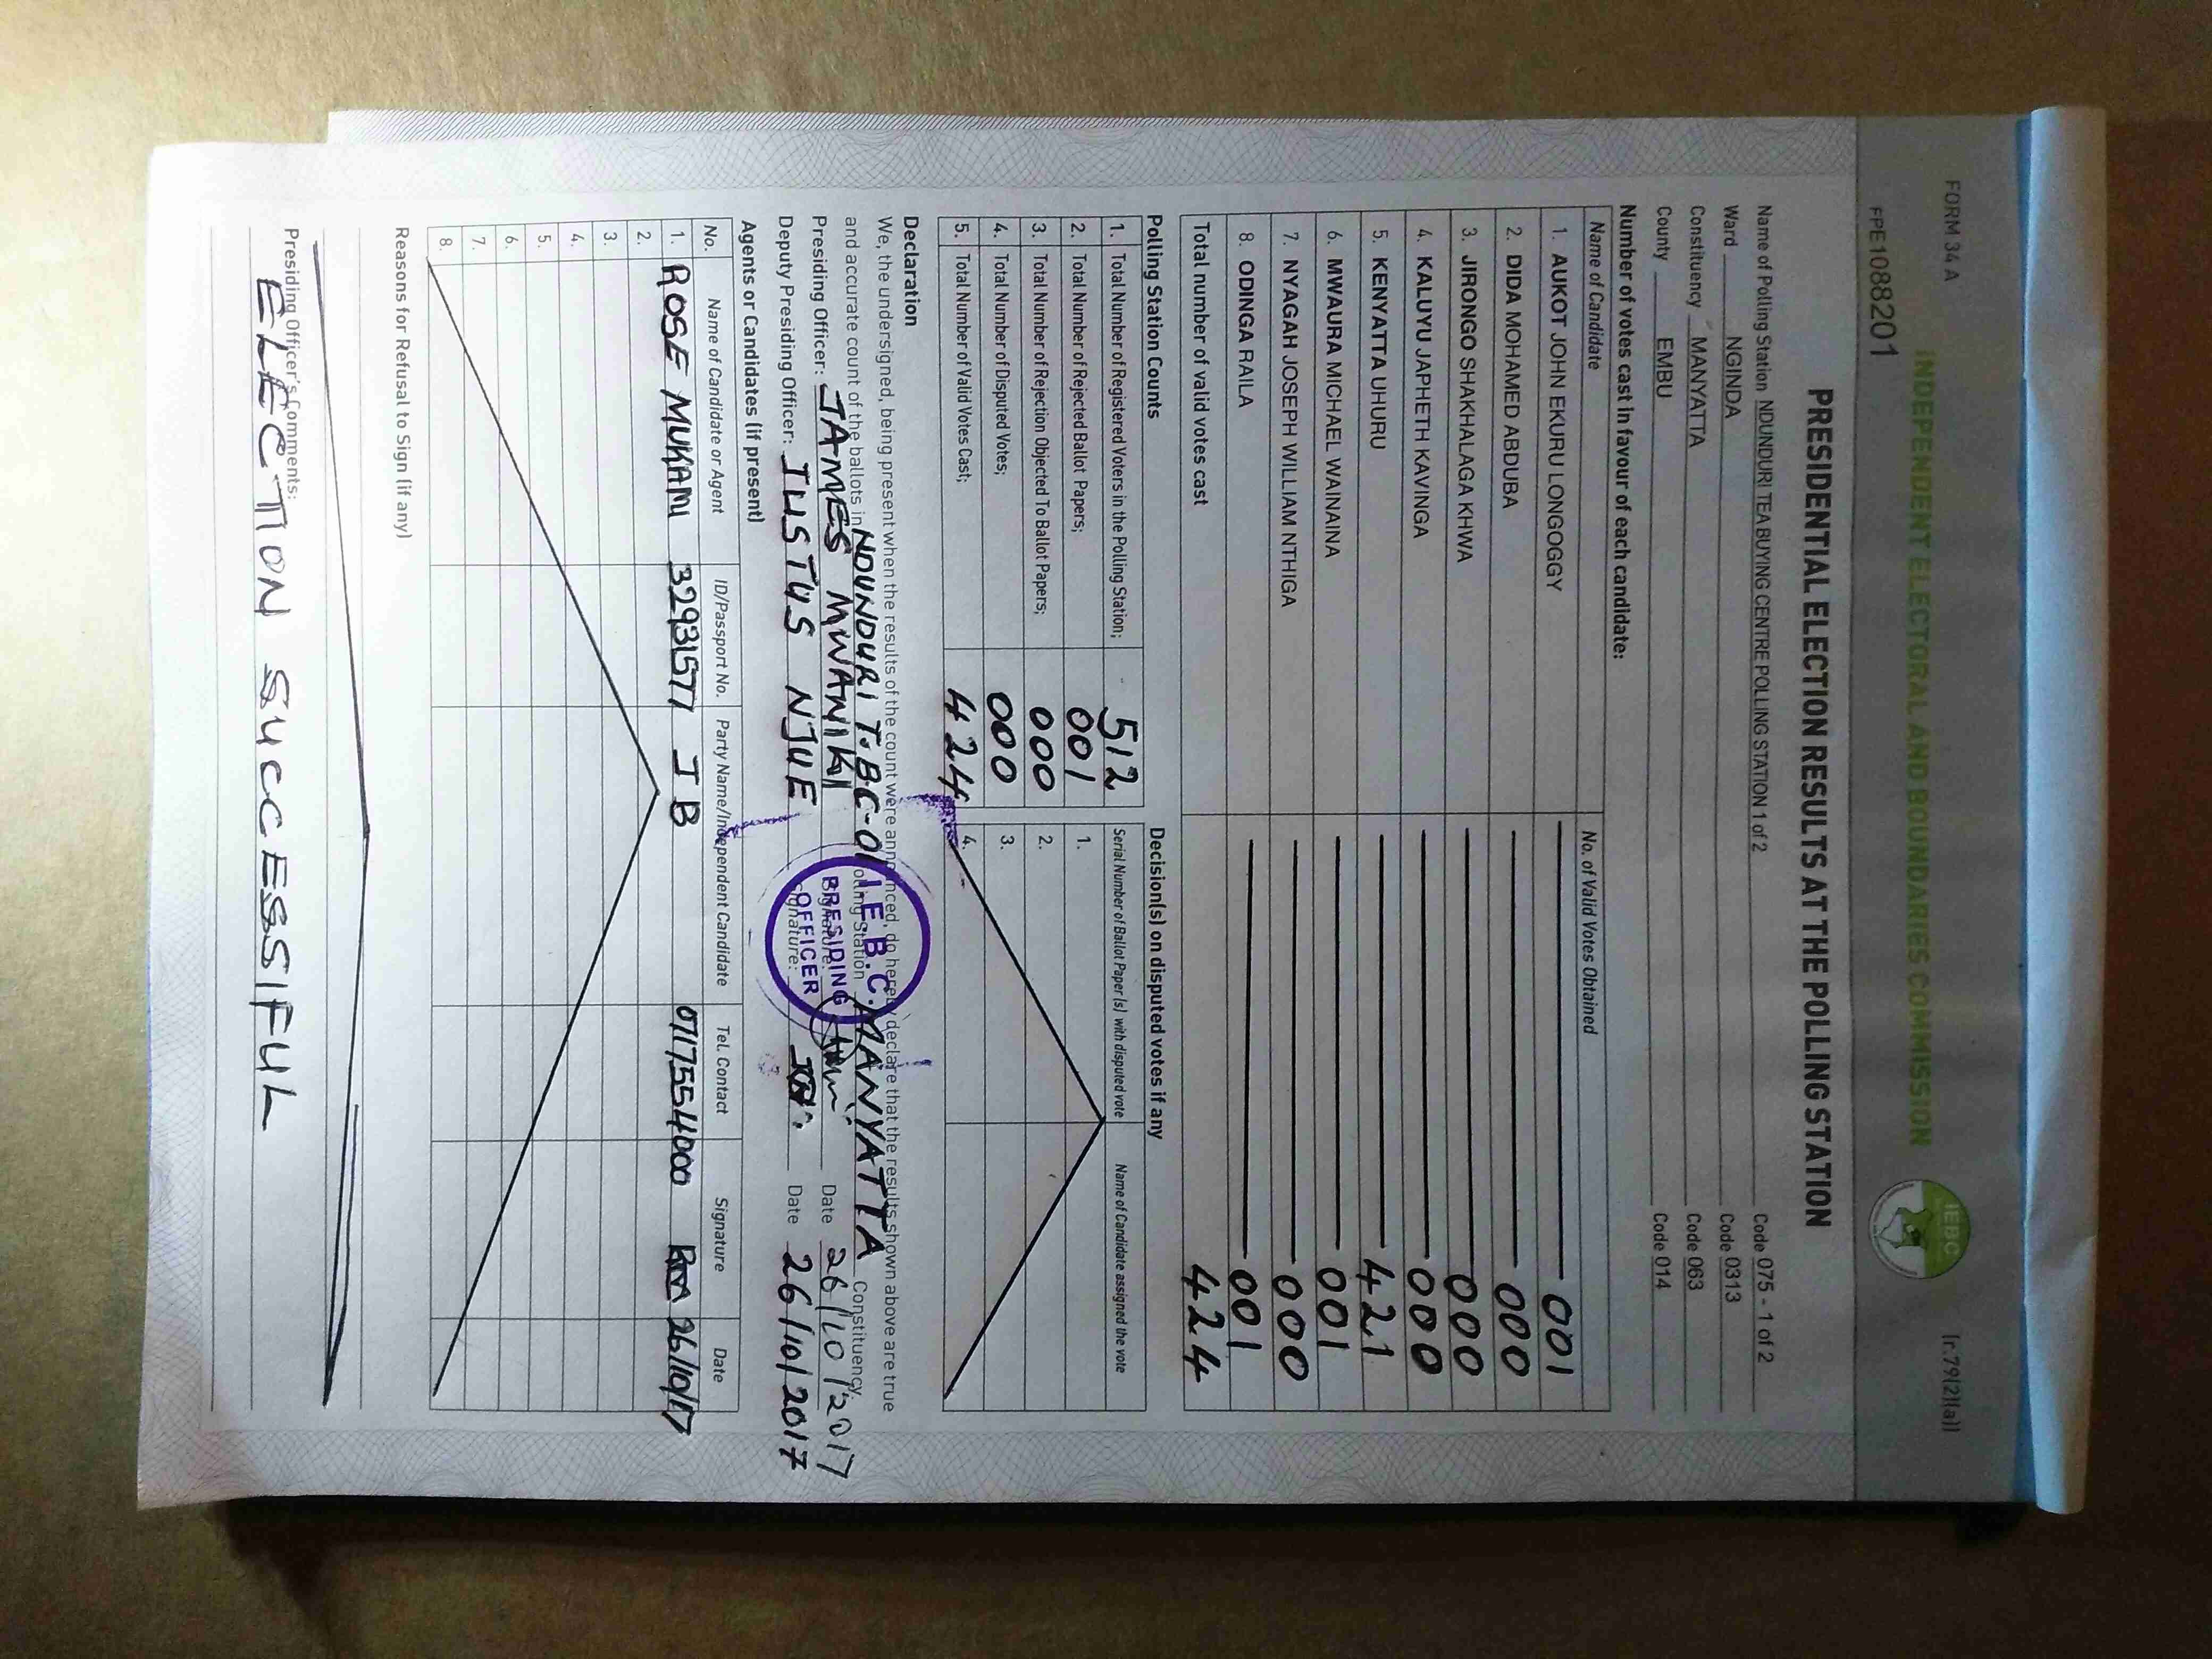 FORM 34 A
(r.79(2)(a))
INDEPENDENT ELECTORAL AND BOUNDARIES COMMISSION
IEBC
FPE1088201
PRESIDENTIAL ELECTION RESULTS AT THE POLLING STATION
Name of Polling Station NDUNDURI TEA BUYING CENTRE POLLING STATION 1 of 2 Code 075 - 1 of 2
Ward NGINDA Code 0313
Constituency MANYATTA Code 063
County EMBU Code 014
Number of votes cast in favour of each candidate:
Name of Candidate No. of Valid Votes Obtained
1. AUKOT JOHN EKURU LONGOGGY 001
2. DIDA MOHAMED ABDUBA 000
3. JIRONGO SHAKHALAGA KHWA 000
4. KALUYU JAPHETH KAVINGA 000
5. KENYATTA UHURU 421
6. MWAURA MICHAEL WAINAINA 001
7. NYAGAH JOSEPH WILLIAM NTHIGA 000
8. ODINGA RAILA 001
Total number of valid votes cast 424
Polling Station Counts Decision(s) on disputed votes if any
1. Total Number of Registered Voters in the Polling Station; 512 Serial Number of Ballot Paper (s) with disputed vote Name of Candidate assigned the vote
2. Total Number of Rejected Ballot Papers; 001 1.
3. Total Number of Rejection Objected To Ballot Papers; 000 2.
4. Total Number of Disputed Votes; 000 3.
5. Total Number of Valid Votes Cast; 424 4.
Declaration
We, the undersigned, being present when the results of the count were announced, do hereby declare that the results shown above are true
and accurate count of the ballots in NDUNDURI T.BC-01 Polling Station MANYATTA Constituency.
Presiding Officer: JAMES MWANIKI Signature: Date 26/10/2017
Deputy Presiding Officer: ILISTUS NJUE Signature: Date 26/10/2017
I.E.B.C.
PRESIDING
OFFICER
Agents or Candidates (if present)
No. Name of Candidate or Agent ID/Passport No. Party Name/Independent Candidate Tel. Contact Signature Date
1. ROSE MUKAMI 32931577 J B 0717554000 26/10/17
2.
3.
4.
5.
6.
7.
8.
Reasons for Refusal to Sign (if any)
Presiding Officer's Comments:
ELECTION SUCCESSIFUL